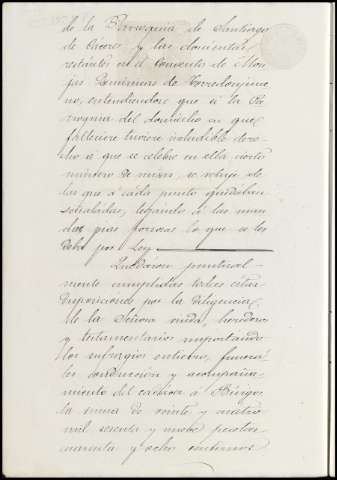 de la Parroquia de Santiago
de Cáceres y las doscientas
restantes en el Convento de Mon
jas Dominicas de Torredonjime
no, entendiendose que si la Pa
rroquia del domicilio en que
falleciere tuviere ineludible dere
cho a que se celebre en ella cierto
número de misas, se rebaje de
las que á cada punto quedaban
señaladas, legando á las man
das pias forzosas lo que se les
debe por Ley.
Quedaron puntual-
mente cumplidas todas estas
disposiciones por la diligencia
de la Señora viuda, heredera
y testamentarios importando
los sufragios entierro, funeral
conducción y acompaña
miento del cadáver á Burgos
la suma de veinte y cuatro
mil sesenta y nueve pesetas
cuarenta y ocho centimos